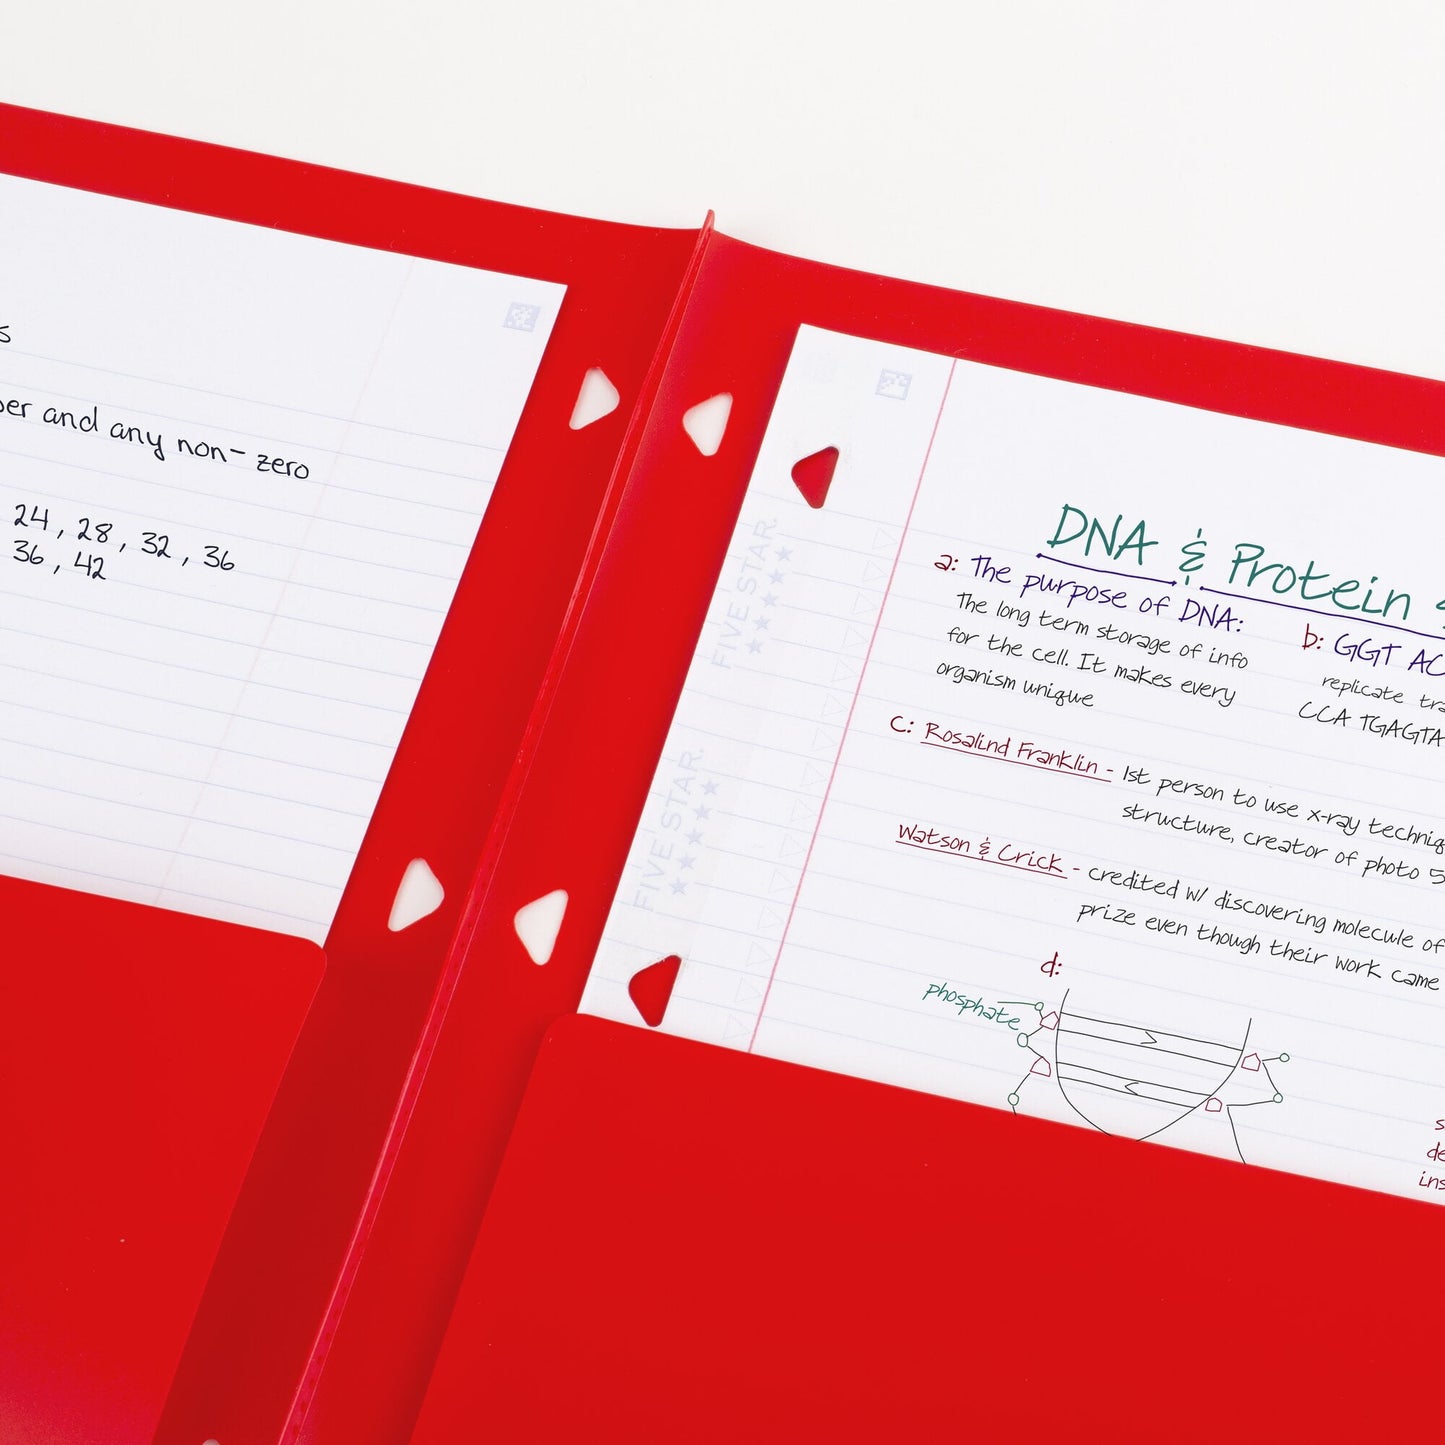 and any non- zero
24, 28, 32, 36
36, 42
FIVE STAR.
FIVE STAR.
DNA & Protein
a: The purpose of DNA:
The long term storage of info
for the cell. It makes every
organism unique
b: GGT AC
replicate
CCA TGAGTA
c: Rosalind Franklin - 1st person to use x-ray
structure, creator of photo 5
Watson & Crick - credited w/ discovering molecule of
prize even though their work came
d:
phosphate